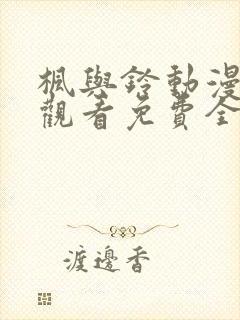 楓與鈴動漫
觀看免費全
渡邊香